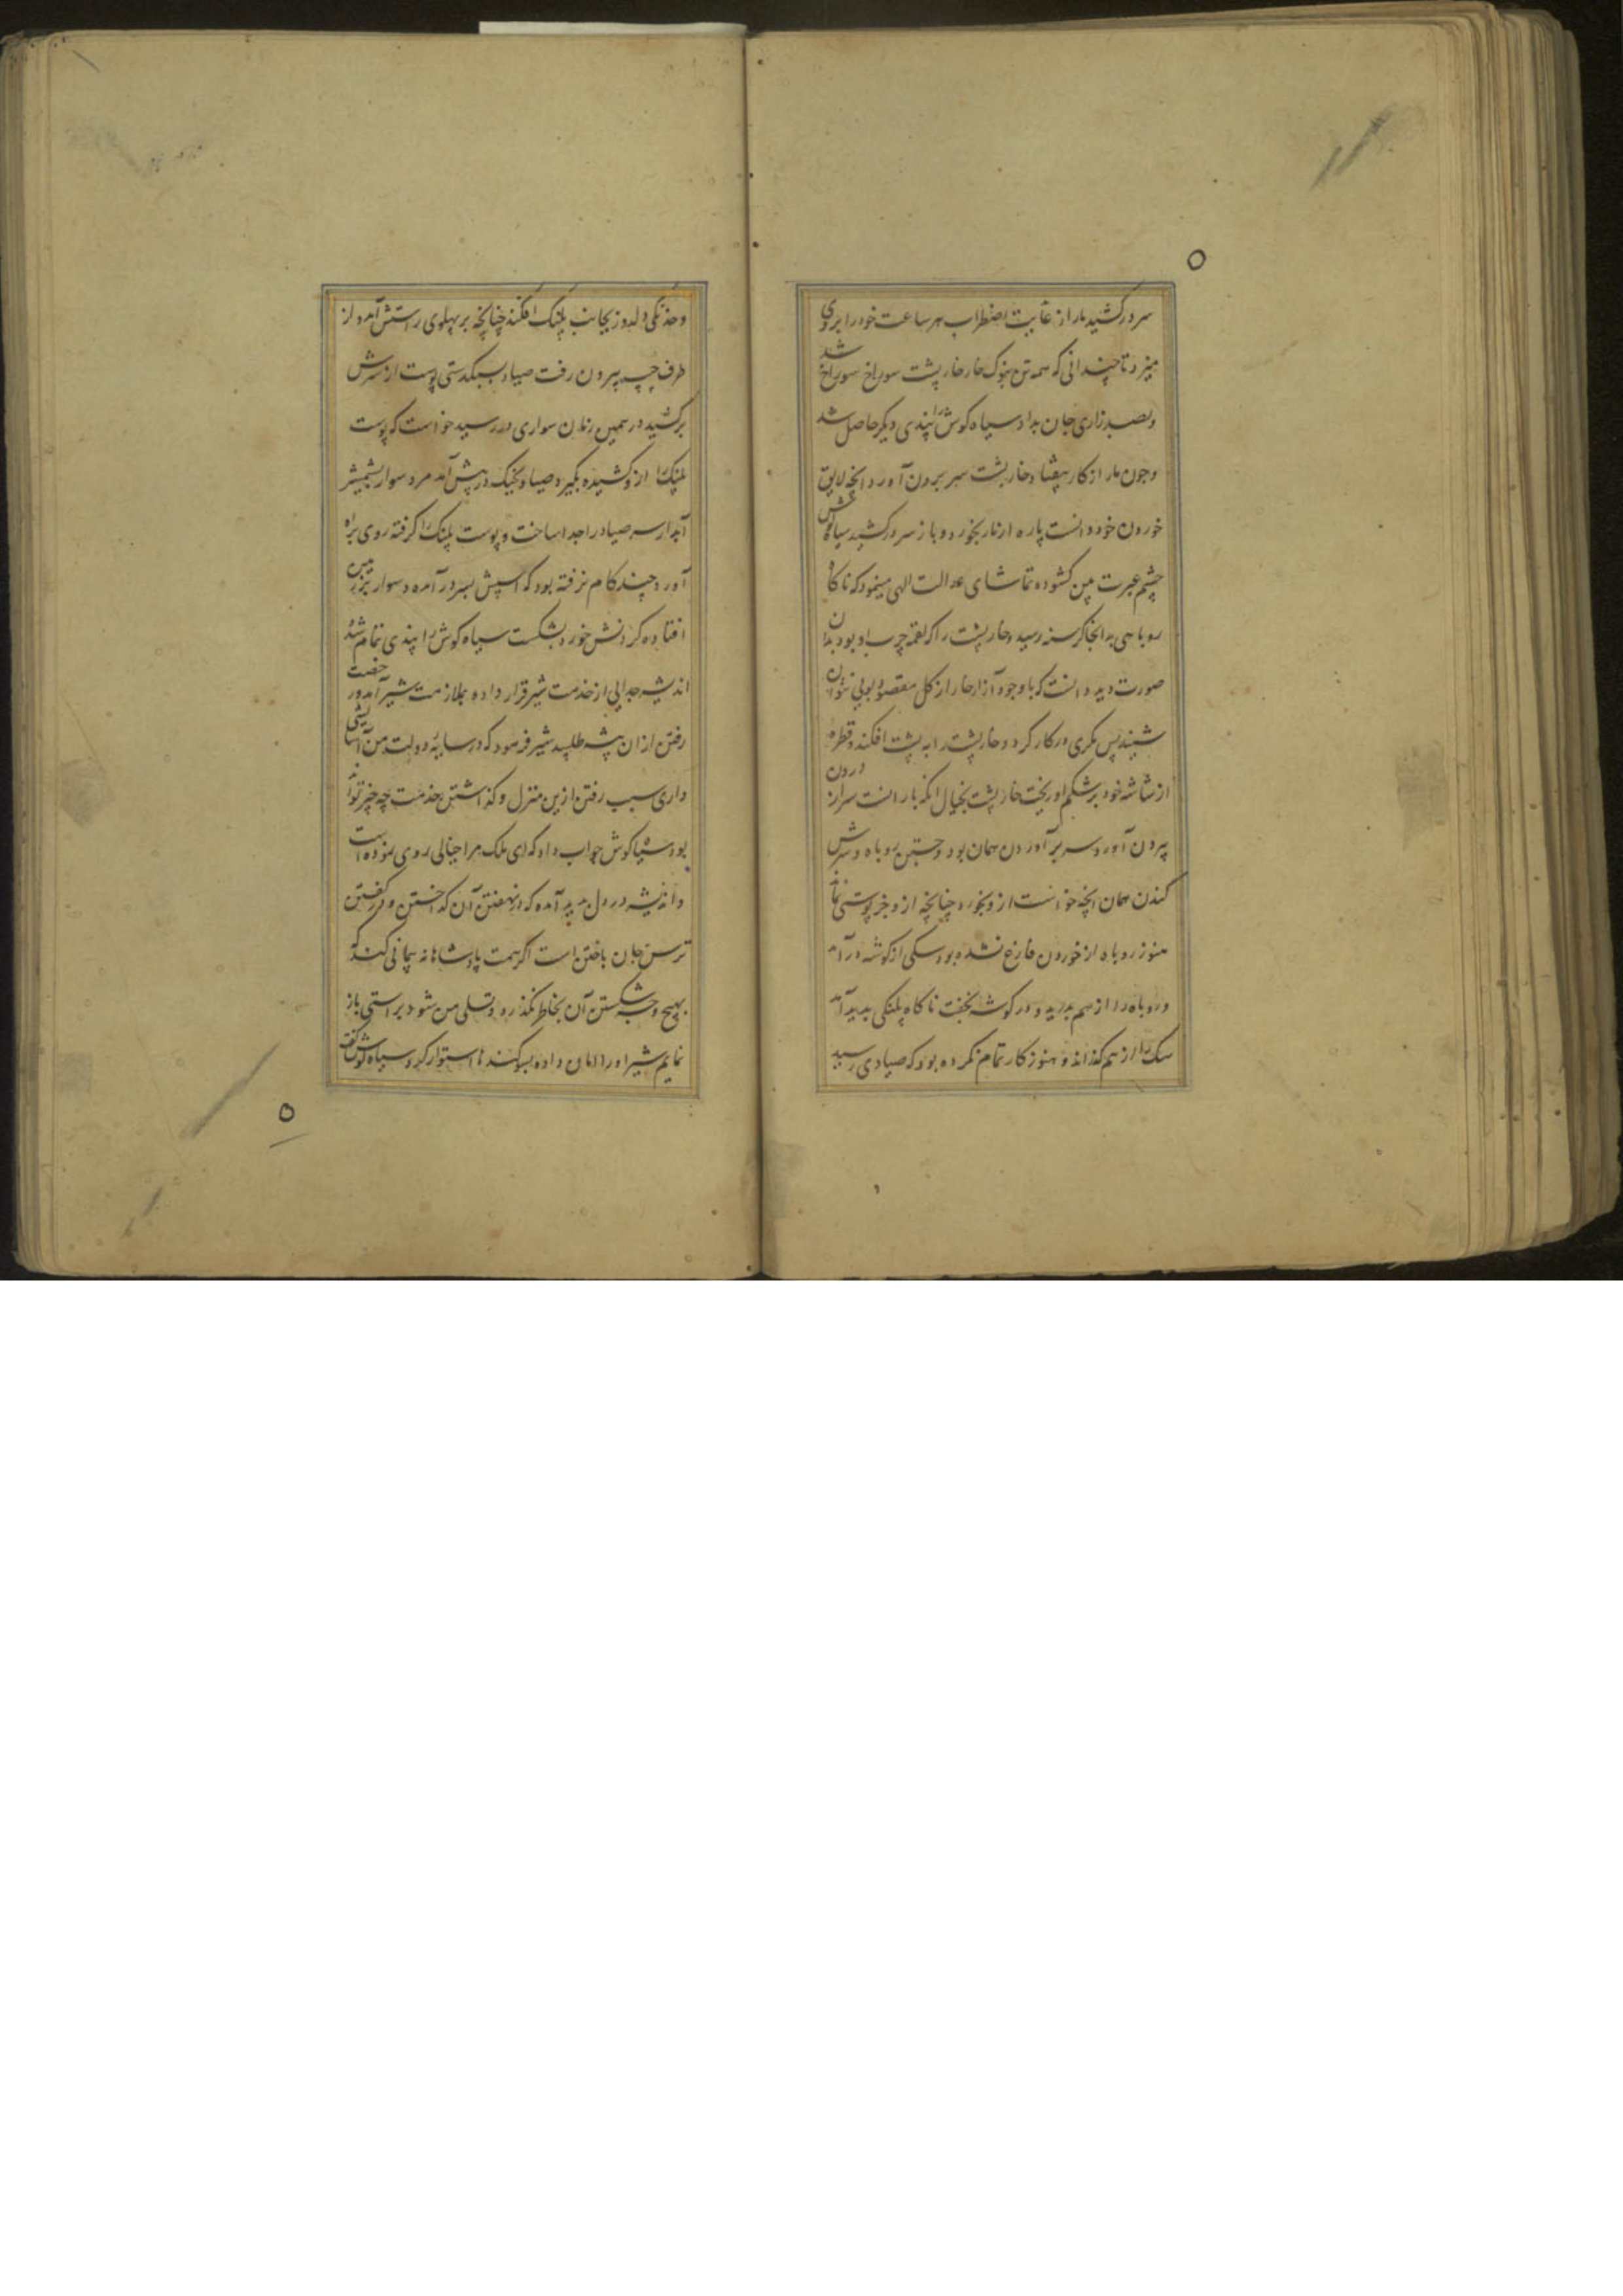 سر درکشید مار از غایت اضطراب هر ساعت خود را بروی
میزد تا چندانی که همه تن بنوک خار خارپشت سوراخ سوراخ شد
و بصد زاری جان بداد سیاه کوش را پندی دیکر حاصل شد
و چون مار از کار بیفتاد خارپشت سر بیرون آورد و انچه لایق
خوردن خود دانست پاره از مار بخورد و باز سر درکشید سیاه کوش
چشم عبرت بین کشوده تماشای عدالت الهی مینمود که ناکاه
روباهی بدانجا کرسنه رسید و خارپشت را که لقمه چرب او بود بدان
صورت دید دانست که با وجود آزار خار از کل مقصود بویی نتوان
شنید پس مکری در کار کرد و خارپشت را به پشت افکند و قطره
از شاشه خود بر شکم او ریخت خارپشت بخیال انکه بارانست سر از درون
بیرون آورد و سر بر آوردن همان بود و جستن روباه و سرش
کندن همان انچه خواست ازو بخورد چنانچه ازو جز پوستی نماند
هنوز روباه از خوردن فارغ نشده بود سکی از کوشه در آمد
و روباه را از هم بدرید و در کوشه بخفت ناکاه پلنکی پدید آمد
سک را از هم کذراند و هنوز کار تمام نکرده بود که صیادی رسید
و خدنکی دلدوز بجانب پلنک افکند چنانچه بر پهلوی راستش آمد و از
طرف چپ بیرون رفت صیاد بسبکدستی پوست از سرش
برکشید در همین زمان سواری در رسید خواست که پوست
پلنک را ازو کشیده بکیرد صیاد بجنک در پیش آمد مرد سوار بشمشیر
آبدار سر صیاد را جدا ساخت و پوست پلنک را کرفته روی براه
آورد چند کام نرفته بود که اسپش بسر در آمد و سوار بر زمین
افتاده کردنش خورد بشکست سیاه کوش را پندی تمام شد
اندیشه جدایی از خدمت شیر قرار داده بملازمت شیر آمد و رخصت
رفتن از ان بیشه طلبید شیر فرمود که در سایه دولت من آسایشی
داری سبب رفتن ازین منزل و کذاشتن خدمت چه چیز تواند
بود سیاه کوش جواب داد که ای ملک مرا خیالی روی نموده است
و اندیشه در دل پدید آمده که در نهفتن آن کداختن و در کفتن
ترس جان باختن است اکر همت پادشاهانه پیمانی کند که
بهیچ وجه شکستن آن بخاطر نکذرد و تسلی من شود براستی باز
نمایم شیر او را امان داده بسوکندها استوار کرد سیاه کوش کفت